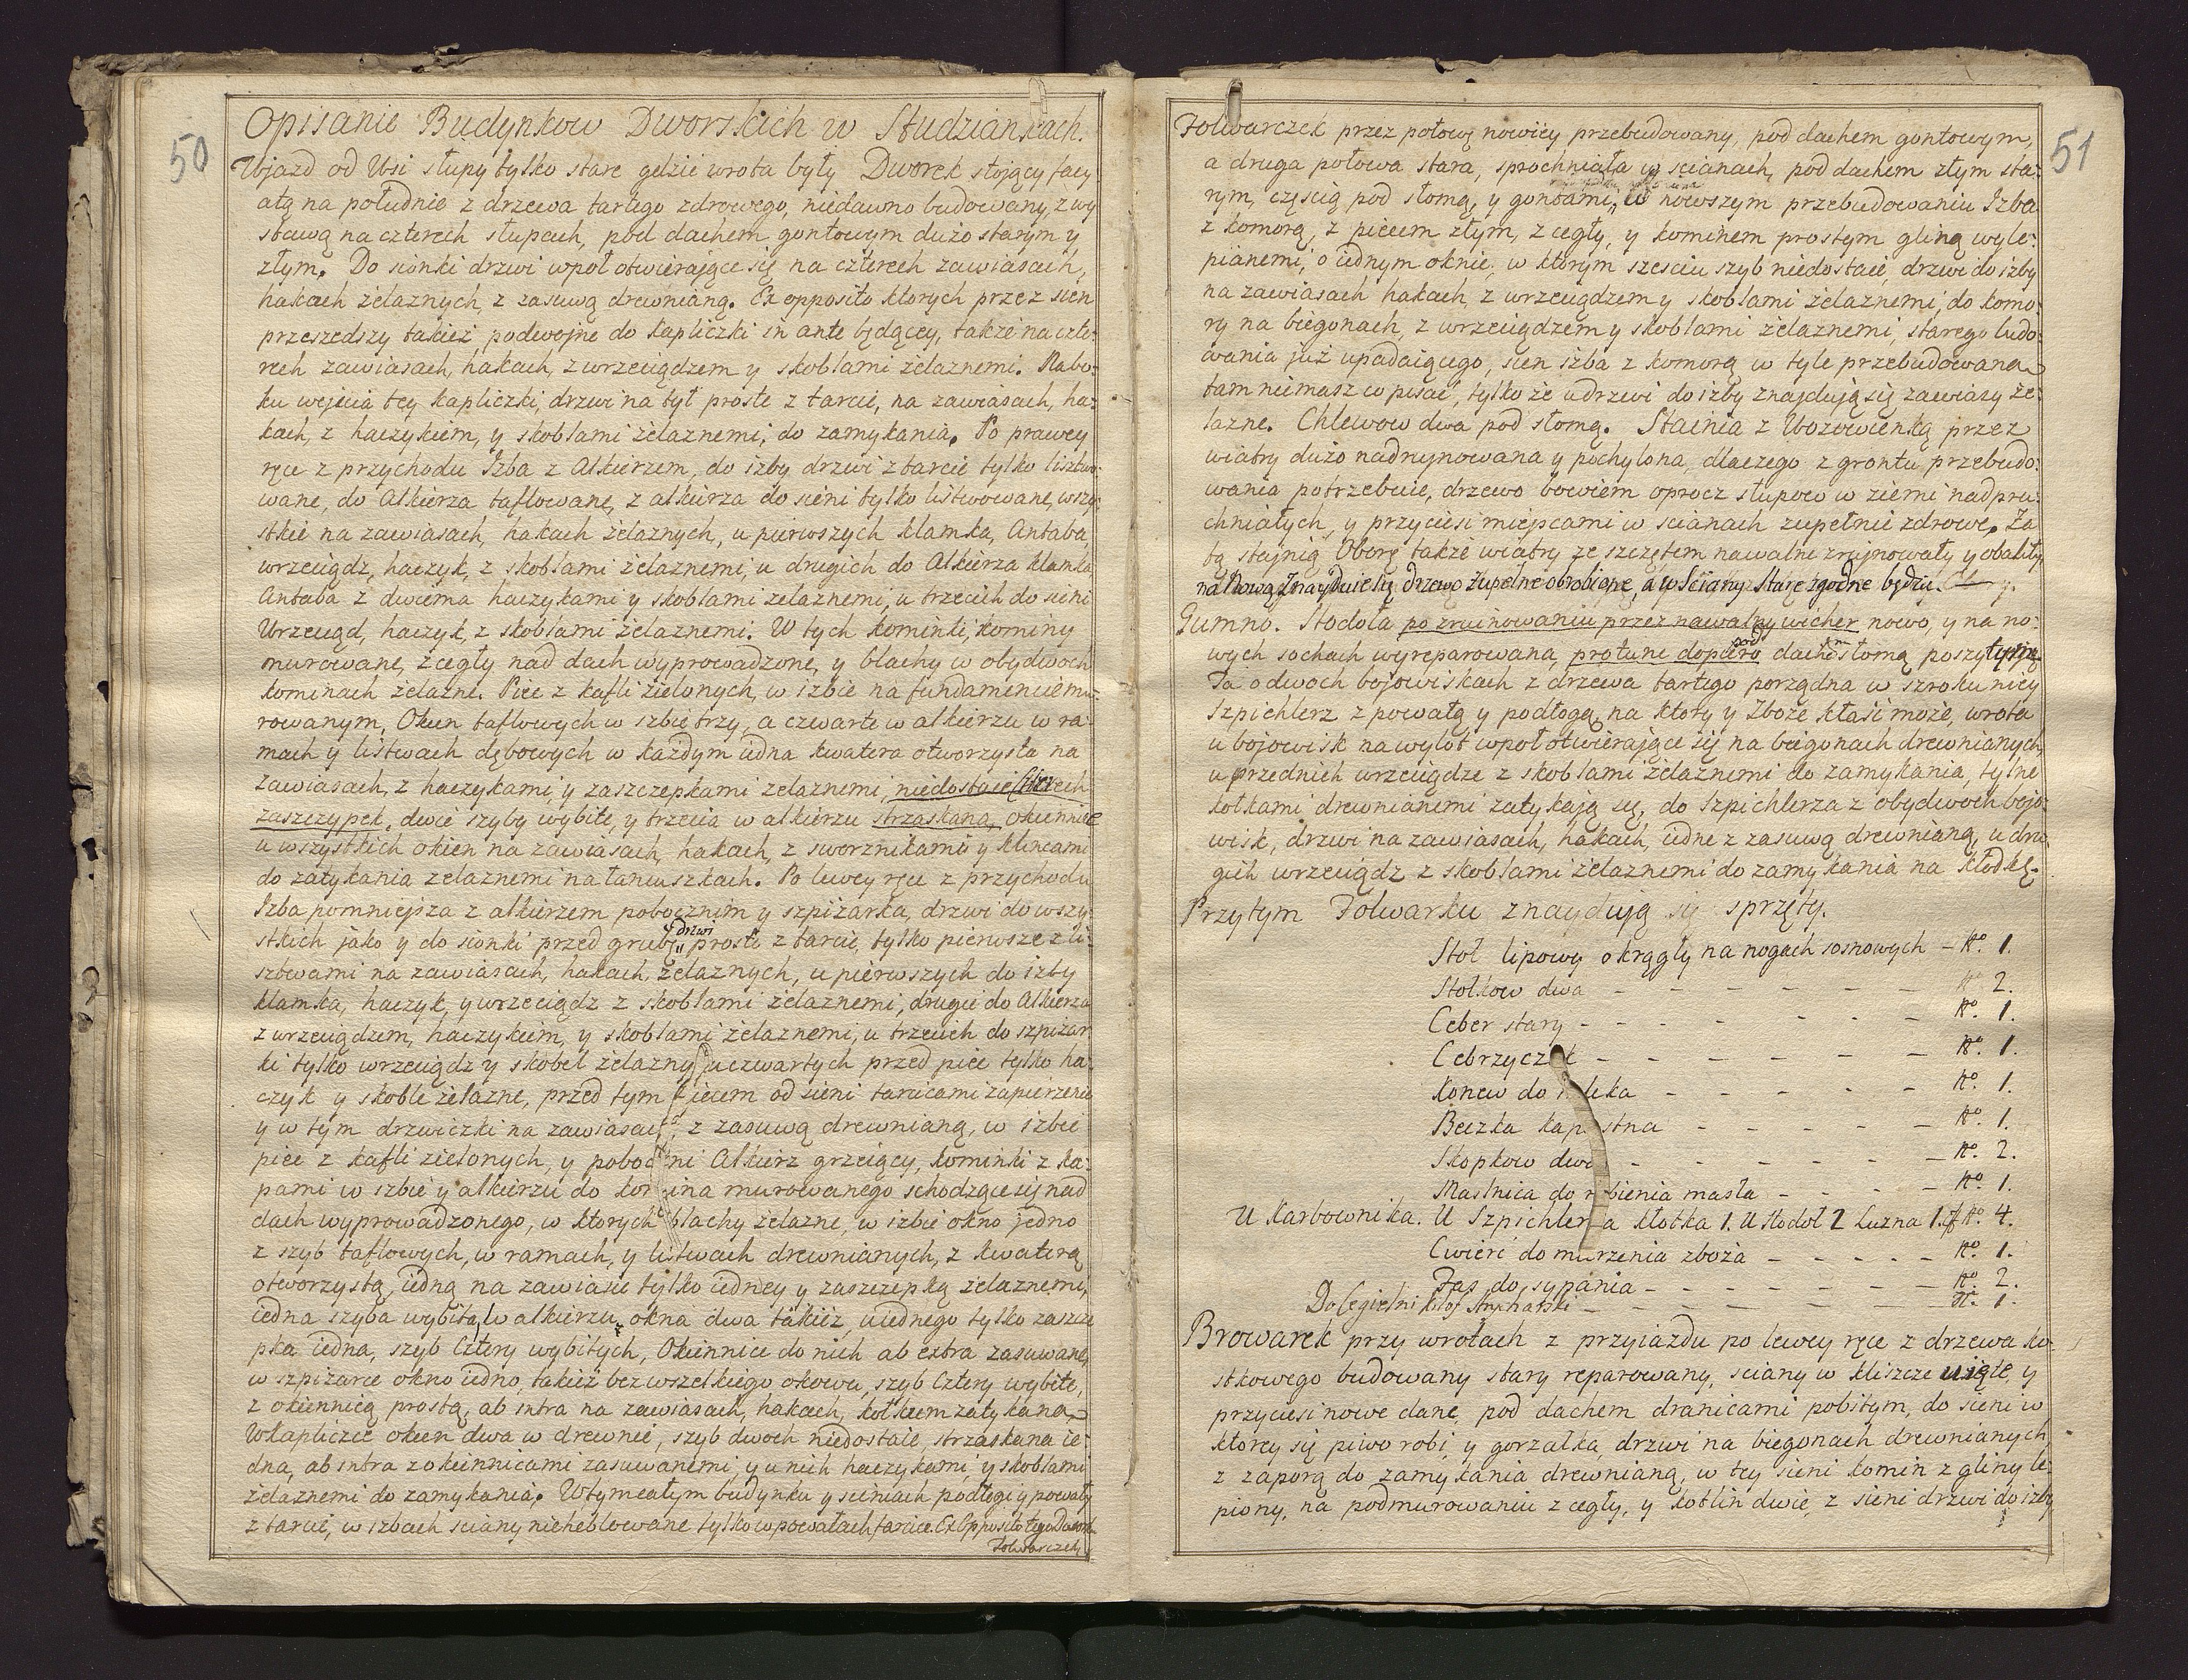 50
Opisanie Budynkow Dworskich w Studziankach.
Wjazd od Wsi słupy tylko stare gdzie wrota były Dworek stojący facy
atą na południe z drzewa tartego zdrowego, niedawno budowany, z wy
stawą na czterech słupach, pod dachem gontowym dużo starym y
złym. Do sionki drzwi wpoł otwierające się na czterech zawiasach,
hakach żelaznych, z zasuwą drewnianą. Ex opposito ktorych przez sien
przeszedszy takież podwojne do kapliczki in ante będącey, także na czte-
rech zawiasach, hakach, z wrzeciądzem y skoblami żelaznemi. Na bo-
ku wejscia tey kapliczki, drzwi na tył proste z tarcic, na zawiasach, ha-
kach, z haczykiem, y skoblami żelaznemi, do zamykania. Po prawey
ręce z przychodu Izba z Alkierzem, do izby drzwi z tarcic tylko lisztwo-
wane, do Alkierza taflowane, z alkierza do sieni tylko listwowane, wszy-
stkie na zawiasach, hakach żelaznych, u pierwszych klamka, Antaba,
wrzeciądz, haczyk, z skoblami żelaznemi, u drugich do Alkierza klamka
Antaba z dwiema haczykami y skoblami zelaznemi, u trzecich do sieni
Wrzeciąd, haczyk, z skoblami żelaznemi. W tych kominki, kominy
murowane, z cegły nad dach wyprowadzone, y blachy w obydwoch
kominach żelazne. Piec z kafli zielonych, w izbie na fundamencie mu-
rowanym, Okien taflowych w izbie trzy, a czwarte w alkierzu w ra-
mach y listwach dębowych w każdym iedna kwatera otworzysta na
zawiasach, z haczykami, y zaszczepkami zelaznemi, niedostaie Czterech
zaszczypek, dwie szyby wybite, y trzecia w alkierzu strzaskana, okiennice
u wszystkich okien na zawiasach, hakach, z sworznikami y klincami
do zatykania zelaznemi na łancuszkach. Po lewey ręce z przychodu
Izba pomniejsza z alkierzem pobocznim y szpiżarka, drzwi do wszy-
stkich jako y do sionki przed grubę drzwi proste z tarcic, tylko pierwsze z li-
sztwami na zawiasach, hakach, żelaznych, u pierwszych do izby
klamka, haczyk, y wrzeciądz z skoblami żelaznemi, drugie do Alkierza
z wrzeciądzem, haczykiem, y skoblami żelaznemi, u trzecich do szpizar-
ki tylko wrzeciądz y skobel żelazny, u czwartych przed piec tylko ha-
czyk y skoble żelazne, przed tym piecem od sieni tarcicami zapierzenie
y w tym drzwiczki na zawiasach, z zasuwą drewnianą, w izbie
piec z kafli zielonych, y poboczni Alkierz grzeiący, kominki z ka-
pami w izbie y alkierzu do komina murowanego schodzące się nad
dach wyprowadzonego, w ktorych blachy żelazne, w izbie okno jedno
z szyb taflowych, w ramach, y listwach drewnianych, z kwaterą
otworzystą, iedną na zawiasie tylko iedney y zaszczepką żelaznemi,
iedna szyba wybita, w alkierzu okna dwa takież, u iednego tylko zaszcze
pka iedna, szyb Cztery wybitych, Okiennice do nich ab extra zasuwane,
w szpizarce okno iedno, takież bez wszelkiego okowu, szyb Cztery wybite,
z okiennicą prostą, ab intra na zawiasach, hakach, kołkiem zatykana,
W kapliczce okien dwa w drewnie, szyb dwoch niedostaie, strzaskana ie-
dna, ab intra z okiennicami zasuwanemi, y u nich haczykami, y skoblami
żelaznemi do zamykania. W tym całym budynku y sieniach podłogi y powały
z tarcic, w izbach sciany nieheblowane tylko w powałach tarcice. Ex Opposito tego Dworku
Folwarczek
51
Folwarczek przez połowę nowiey przebudowany, pod dachem gontowym,
a druga połowa stara, sprochniała w scianach, pod dachem złym sta-
rym, częscią pod słomą, y gontami, w nowszym przebudowaniu Izba
z komorą, z piecem złym, z cegły, y kominem prostym gliną wyle-
pianemi, o iednym oknie, w ktorym szesciu szyb niedostaie, drzwi do izby
na zawiasach hakach, z wrzeciądzem y skoblami żelaznemi, do komo-
ry na biegonach, z wrzeciądzem y skoblami żelaznemi, starego budo-
wania już upadaiącego, sien izba z komorą w tyle przebudowana
tam niemasz co pisać, tylko że u drzwi do izby znajdują się zawiasy że-
lazne. Chlewow dwa pod słomą. Stainia z Wozowienką przez
wiatry dużo nadrujnowana y pochylona, dlaczego z gruntu przebudo-
wania potrzebuie, drzewo bowiem oprocz słupow w ziemi nadpru-
chniałych, y przyciesi miejscami w scianach zupełnie zdrowe. Za
tą stajnią Oborę także wiatry ze szczętem nawalne zrujnowały y obaliły
na Nową znayduie się drzewo zupełnie obrobione, a w Sciany Stare zgodne będzie.
Gumno. Stodoła po zruinowaniu przez nawalny wicher nowo, y na no-
wych sochach wyreparowana, protunc dopiero pod dachem słomą poszytym
Ta o dwoch bojowiskach z drzewa tartego porządna w szrodku niey
Szpichlerz z powałą y podłogą, na ktory y Zboże kłaść może, wrota
u bojowisk na wylot wpoł otwierające się na biegonach drewnianych,
u przednich wrzeciądze z skoblami żelaznemi do zamykania, tylne
kołkami drewnianemi zatykają się, do Szpichlerza z obydwoch bojo-
wisk, drzwi na zawiasach, hakach, iedne z zasuwą drewnianą, u dru-
gich wrzeciądz z skoblami żelaznemi do zamykania na Kłodkę.
Przytym Folwarku znaydują się sprzęty.
Stoł lipowy okrągły na nogach sosnowych - No. 1.
Stołkow dwa - No 2.
Ceber stary - No. 1.
Cebrzyczek - No. 1.
Konew do mleka - No. 1.
Beczka kapustna - No. 1.
Skopkow dwa - No. 2.
Maslnica do robienia masła - No. 1.
U Karbownika. U Szpichlerza kłotka 1. U Stodoł 2 Luzna 1. No. 4.
Cwierć do mierzenia zboża - No. 1.
Fas do sypania - No. 2.
Do Cegielni Strycharski - N. 1.
Browarek przy wrotach z przyjazdu po lewey ręce z drzewa ko-
stkowego budowany stary reparowany, sciany w kliszcze uięte, y
przyciesi nowe dane, pod dachem dranicami pobitym, do sieni w
ktorey się piwo robi, y gorzałka, drzwi na biegonach drewnianych,
z zaporą do zamykania drewnianą, w tey sieni komin z gliny le-
piony, na podmurowaniu z cegły, y kotlin dwie, z sieni drzwi do izby